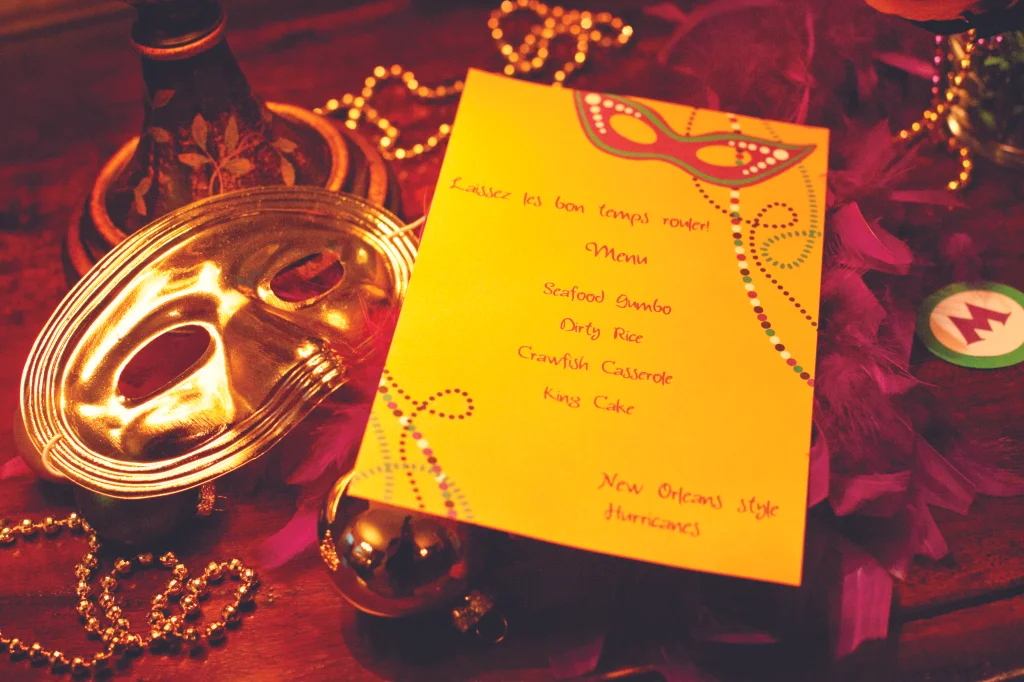 Laissez les bon temps rouler!
Menu
Seafood Gumbo
Dirty Rice
Crawfish Casserole
King Cake
New Orleans style
Hurricanes
M